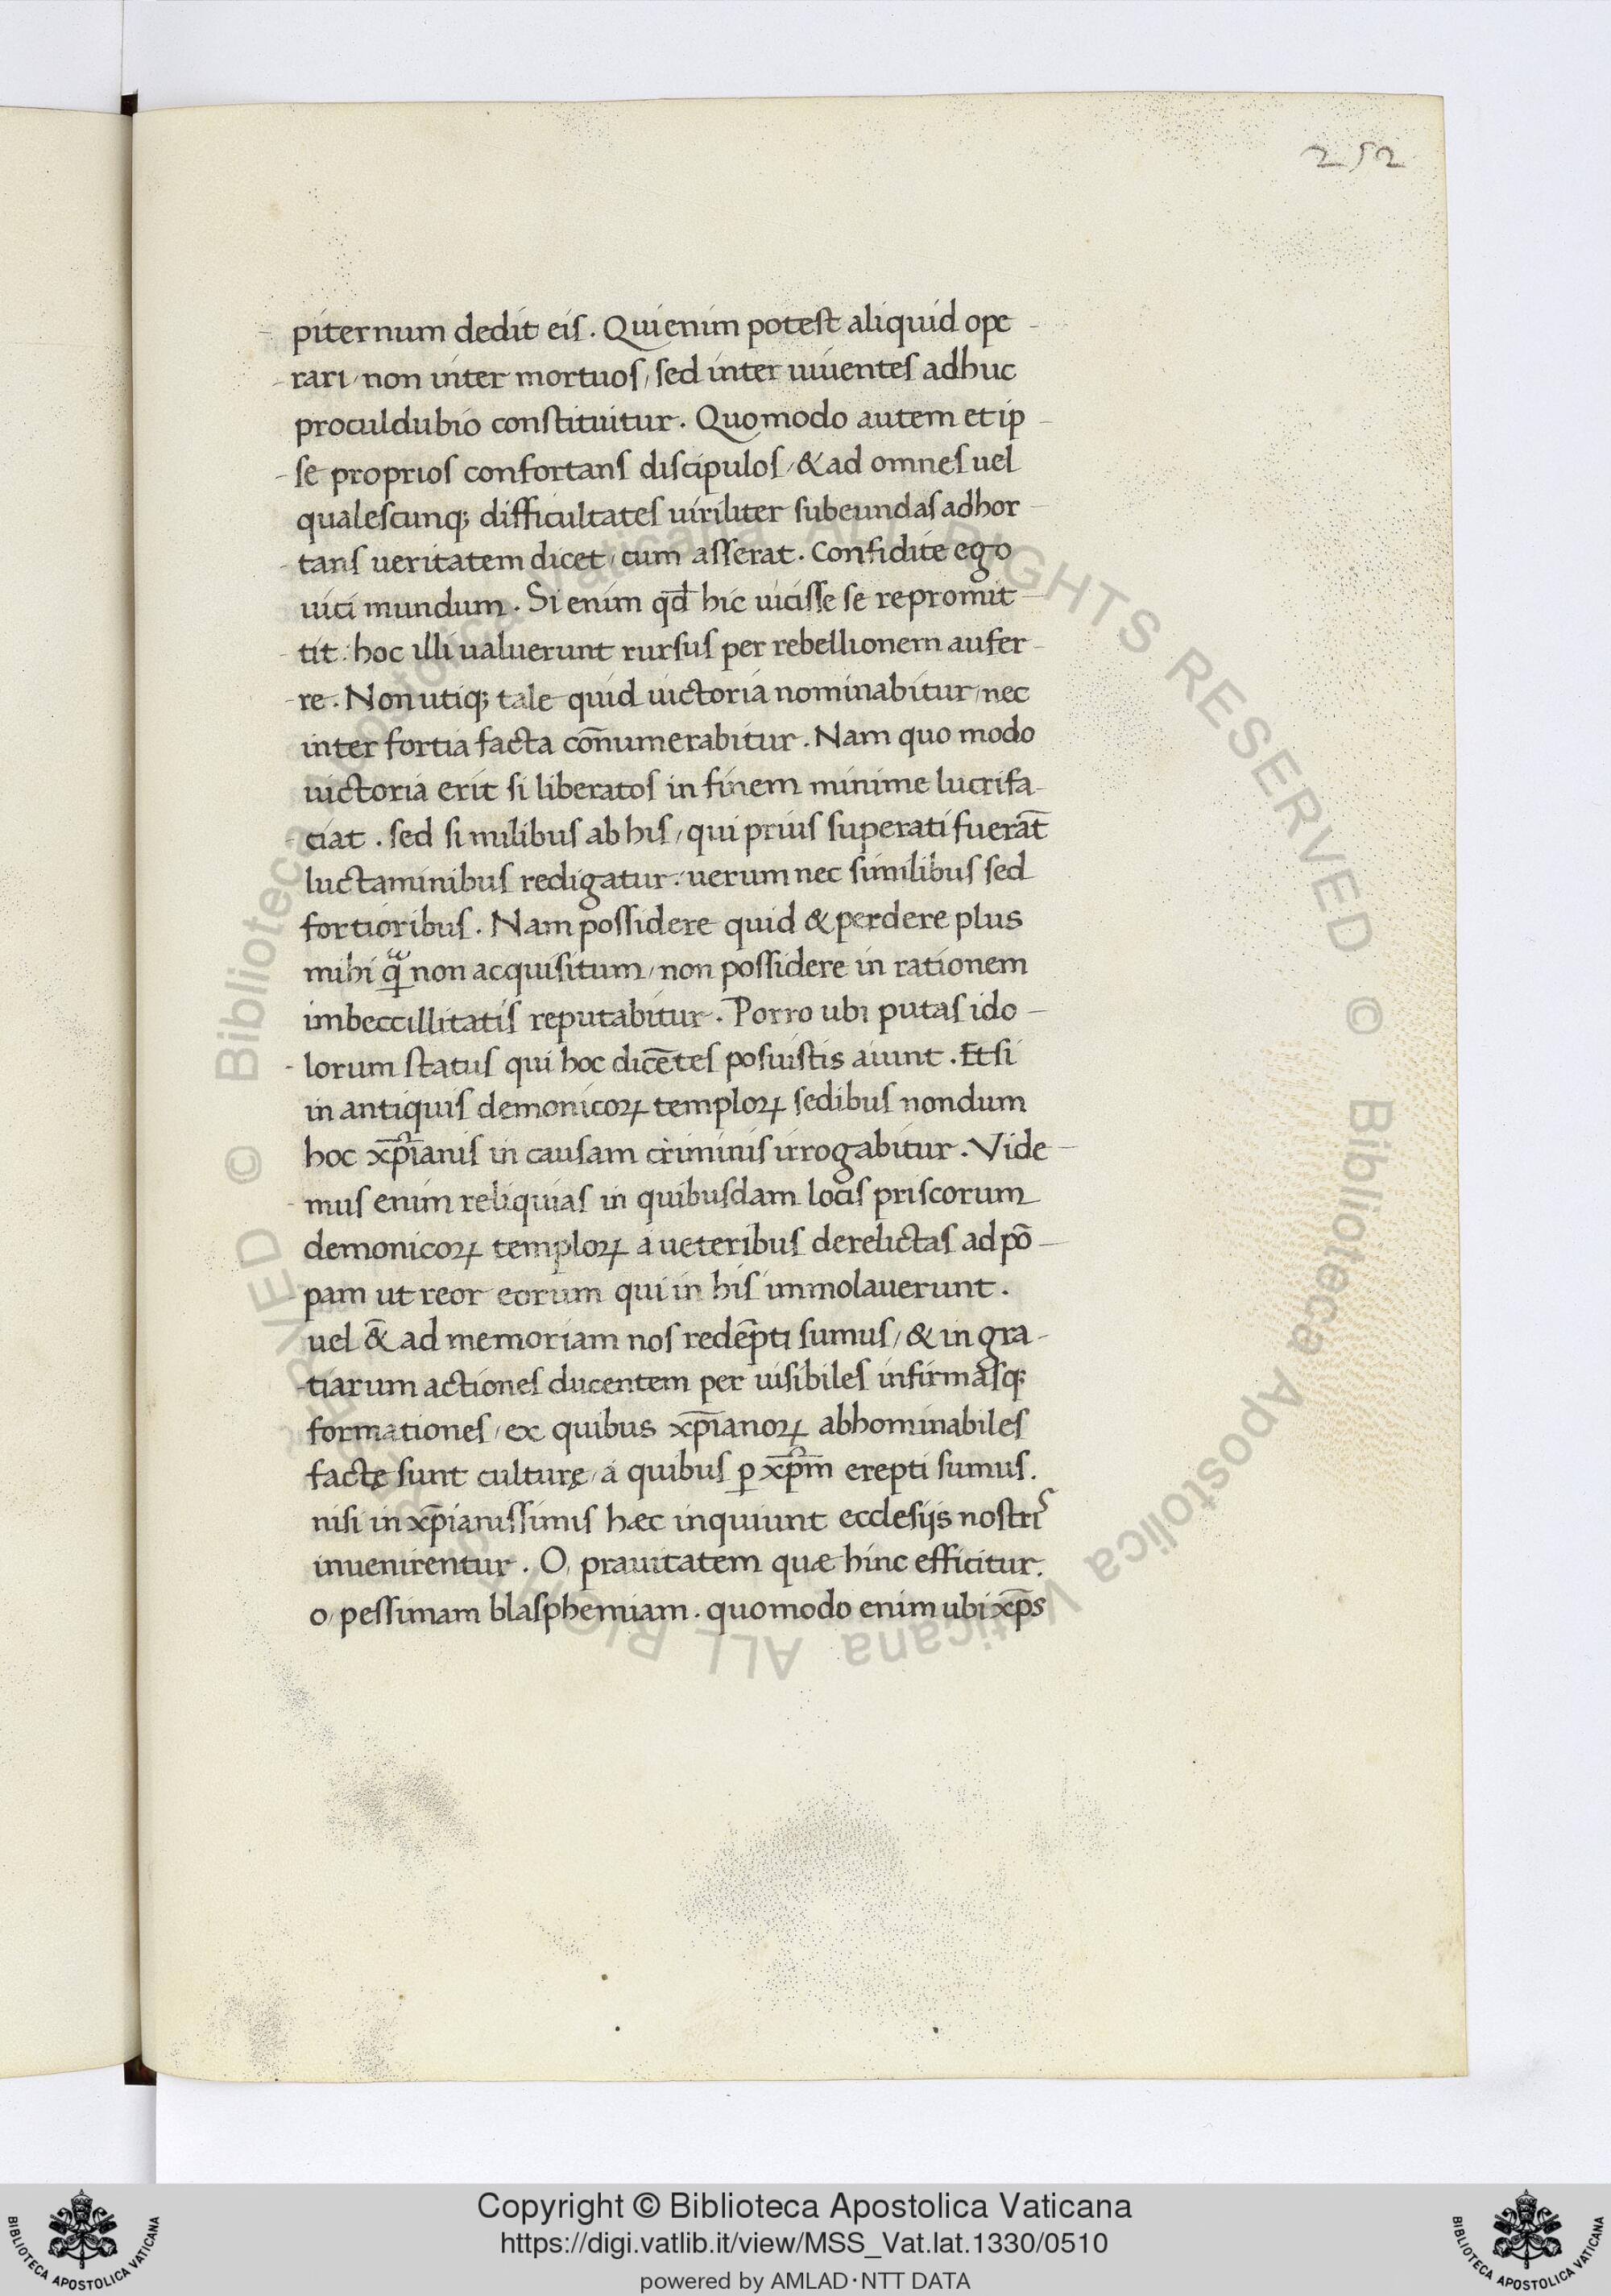 252
piternum dedit eis. Qui enim potest aliquid ope-
rari, non inter mortuos, sed inter uiuentes adhuc
proculdubio constituitur. Quomodo autem et ip-
se proprios confortans discipulos, & ad omnes uel
qualescunq; difficultates uiriliter subeundas adhor-
tans ueritatem dicet, cum asserat. Confidite ego
uici mundum. Si enim qd̄ hic uicisse se repromit-
tit: hoc illi ualuerunt rursus per rebellionem aufer-
re. Non utiq; tale quid uictoria nominabitur, nec
inter fortia facta cōnumerabitur. Nam quo modo
uictoria erit si liberatos in finem minime lucrifa-
ciat. sed similibus ab his, qui prius superati fuerāt
luctaminibus redigatur: uerum nec similibus sed
fortioribus. Nam possidere quid & perdere plus
mihi qͣ̃ non acquisitum, non possidere in rationem
imbeccillitatis reputabitur. Porro ubi putas ido-
lorum status qui hoc dicētes posuistis aiunt. Et si
in antiquis demonicoꝝ temploꝝ sedibus nondum
hoc xp̄ianis in causam criminis irrogabitur. Vide-
mus enim reliquias in quibusdam locis priscorum
demonicoꝝ temploꝝ a ueteribus derelictas ad pō-
pam ut reor eorum qui in his immolauerunt.
uel &̄ ad memoriam nos redēpti sumus, & in gra-
tiarum actiones ducentem per uisibiles infirmasq;
formationes, ex quibus xp̄ianoꝝ abhominabiles
factę sunt culturę, a quibus ꝑ xp̄m erepti sumus.
nisi in xp̄ianissimis hæc inquiunt ecclesijs nostris
inuenirentur. O, prauitatem quæ hinc efficitur.
o, pessimam blasphemiam. quomodo enim ubi xp̄s
© Biblioteca Apostolica Vaticana ALL RIGHTS RESERVED © Biblioteca Apostolica Vaticana ALL RIGHTS RESERVED
Copyright © Biblioteca Apostolica Vaticana
https://digi.vatlib.it/view/MSS_Vat.lat.1330/0510
powered by AMLAD·NTT DATA
BIBLIOTECA APOSTOLICA VATICANA
BIBLIOTECA APOSTOLICA VATICANA